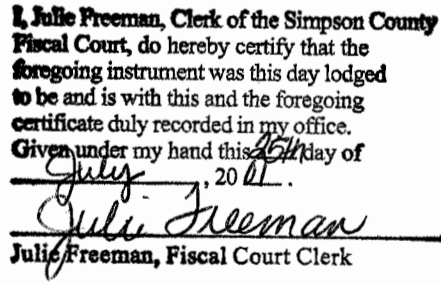 I, Julie Freeman, Clerk of the Simpson County
Fiscal Court, do hereby certify that the
foregoing instrument was this day lodged
to be and is with this and the foregoing
certificate duly recorded in my office.
Given under my hand this 25th day of
July, 2001.
Julie Freeman
Julie Freeman, Fiscal Court Clerk